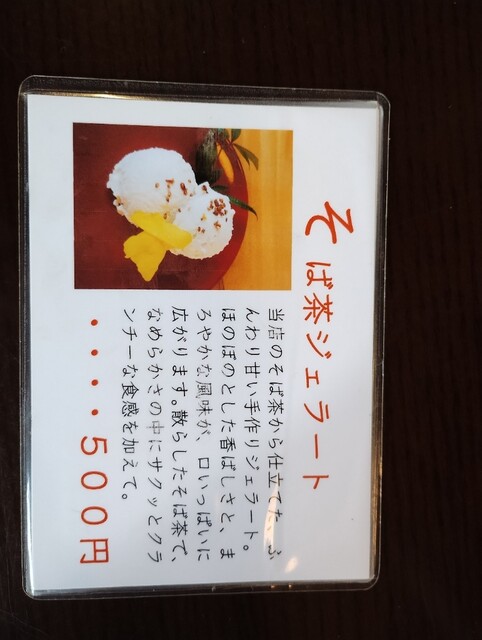 そば茶ジェラート
当店のそば茶から仕立てた、ふ
んわり甘い手作りジェラート。
ほのぼのとした香ばしさと、ま
ろやかな風味が、口いっぱいに
広がります。散らしたそば茶で、
なめらかさの中にサクッとクラ
ンチーな食感を加えて。
・・・・・500円